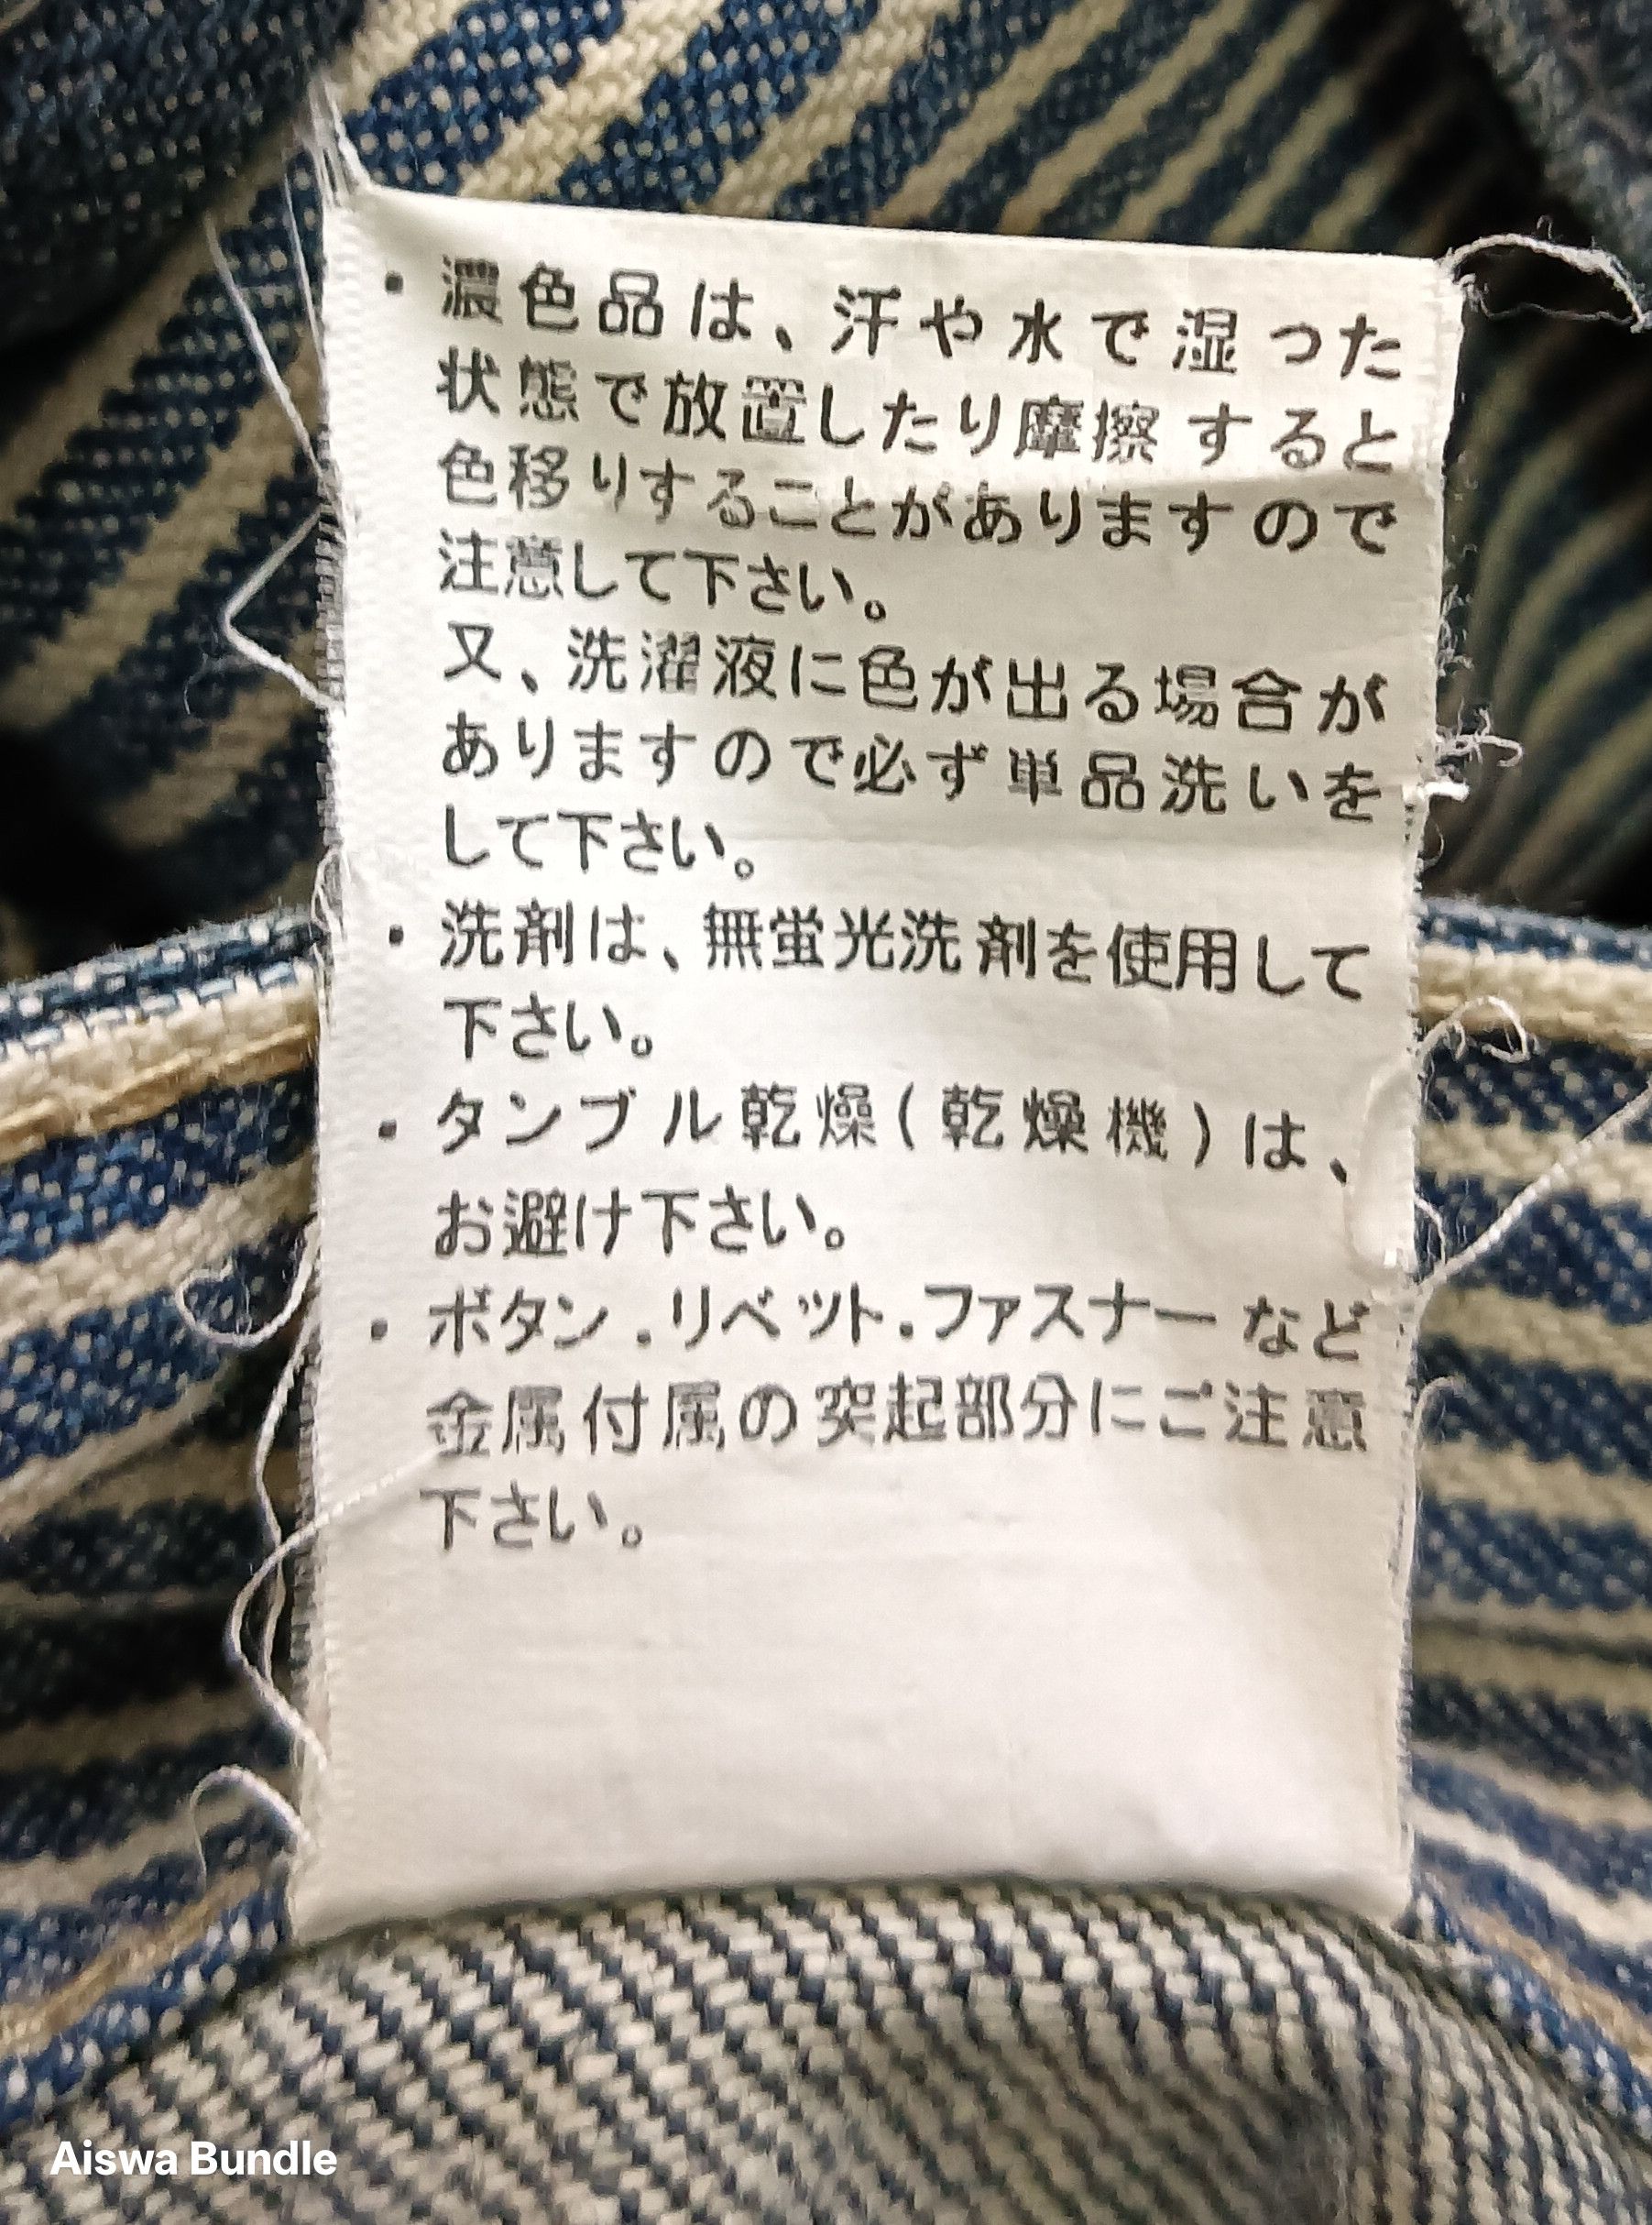 ・濃色品は、汗や水で湿った
状態で放置したり摩擦すると
色移りすることがありますので
注意して下さい。
又、洗濯液に色が出る場合が
ありますので必ず単品洗いを
して下さい。
・洗剤は、無蛍光洗剤を使用して
下さい。
・タンブル乾燥(乾燥機)は、
お避け下さい。
・ボタン.リベット.ファスナーなど
金属付属の突起部分にご注意
下さい。
Aiswa Bundle